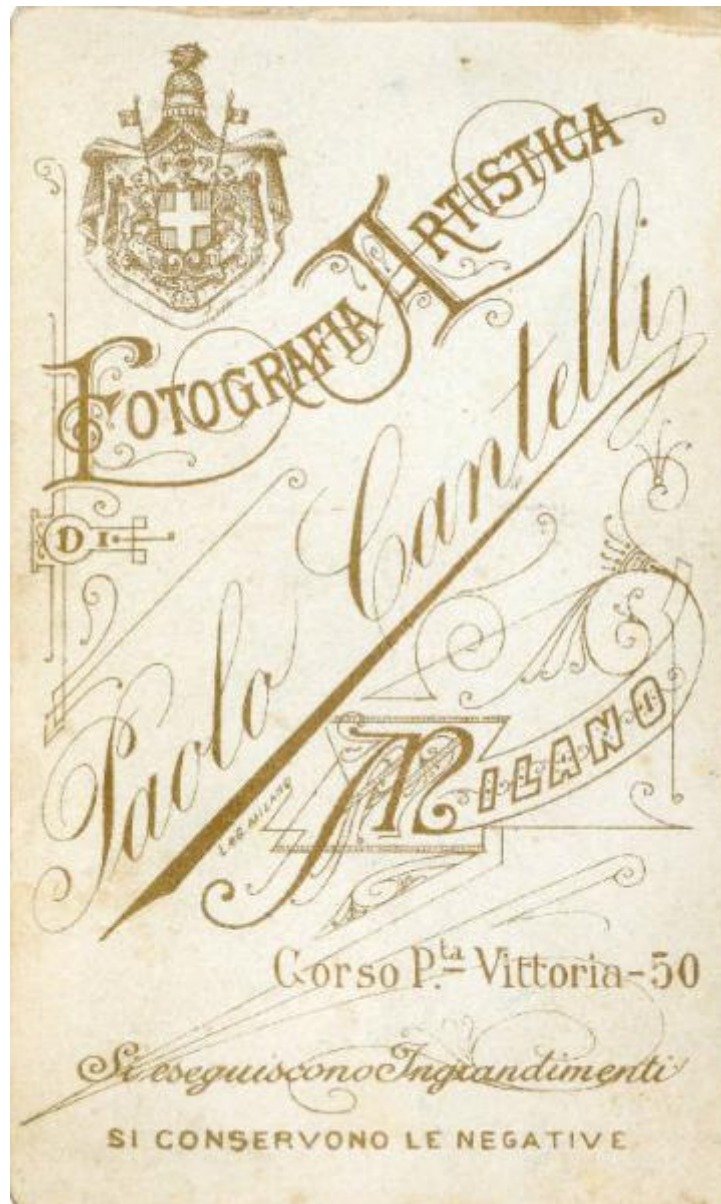 FOTOGRAFIA ARTISTICA
DI
Paolo Cantelli
MILANO
L&G. MILANO
Corso P.ta Vittoria-50
Si eseguiscono Ingrandimenti
SI CONSERVONO LE NEGATIVE